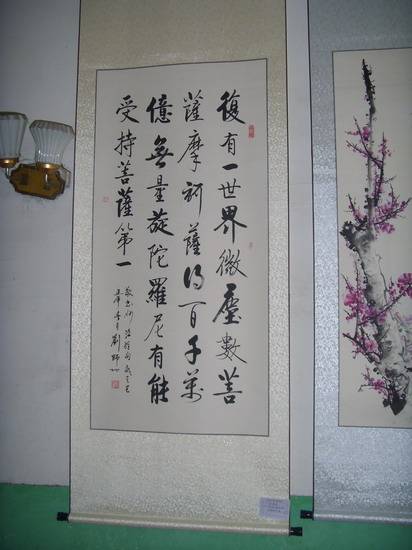 復有一世界微塵數菩
薩摩訶薩得百千萬
億無量旋陀羅尼有能
受持菩薩第一